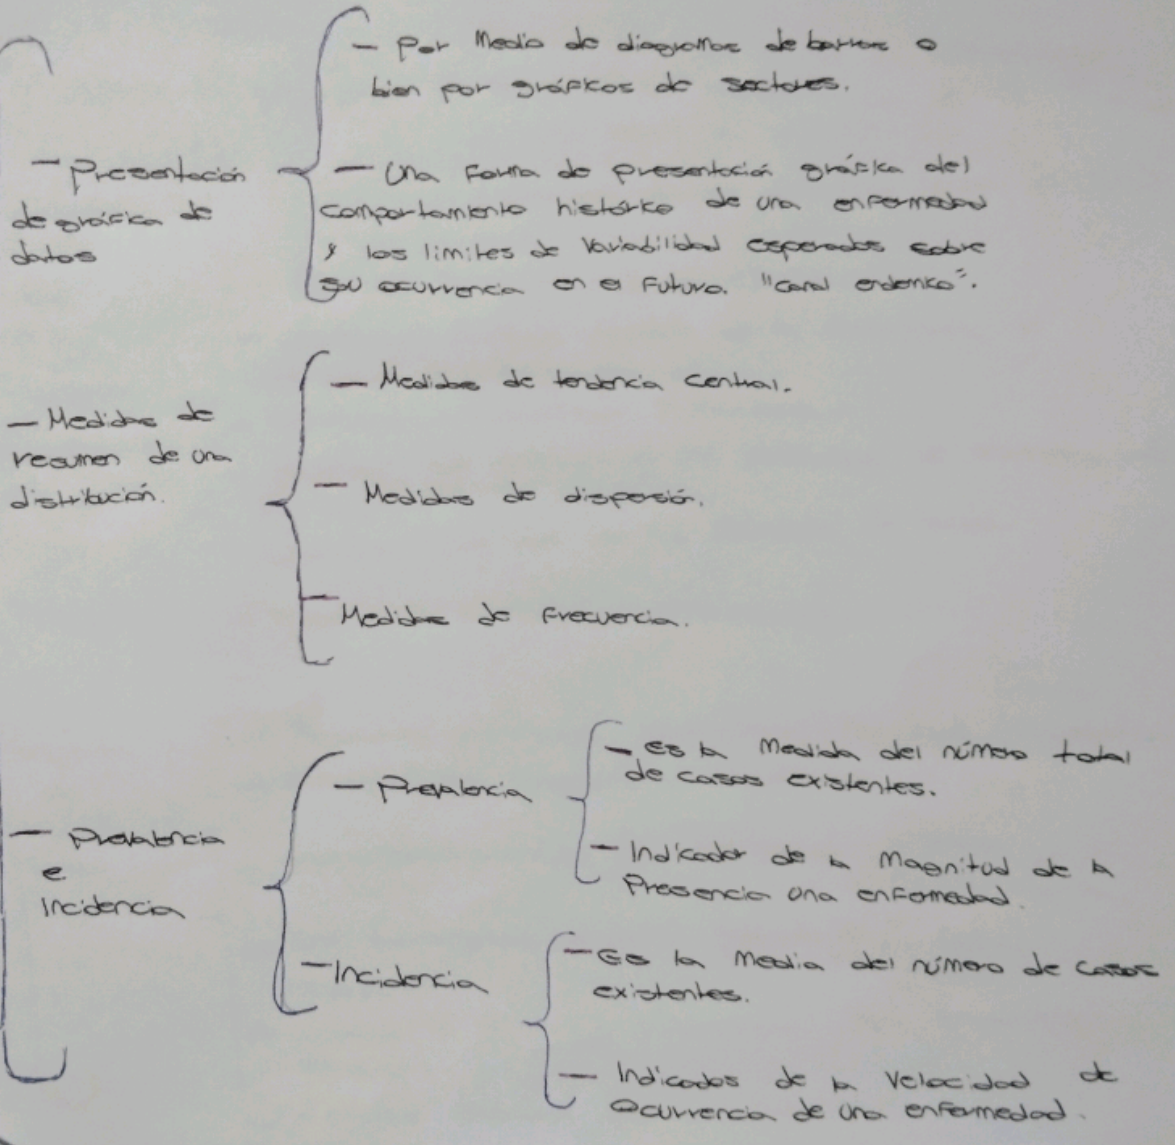 - Presentación
de gráfica de
datos
- Por Medio de diagramas de barras o
bien por gráficos de sectores.
- Una Forma de presentación gráfica del
comportamiento histórico de una enfermedad
y los limites de Variabilidad esperados sobre
su ocurrencia en el Futuro. "Canal endemico".
- Medidas de
resumen de una
distribución.
- Medidas de tendencia central.
- Medidas de dispersión.
- Medidas de Frecuencia.
- Prevalencia
e
Incidencia
- Prevalencia
- Es la Medida del número total
de casos existentes.
- Indicador de la Magnitud de la
Presencia una enfermedad.
- Incidencia
- Es la Media del número de casos
existentes.
- Indicados de la Velocidad de
Ocurrencia de una enfermedad.